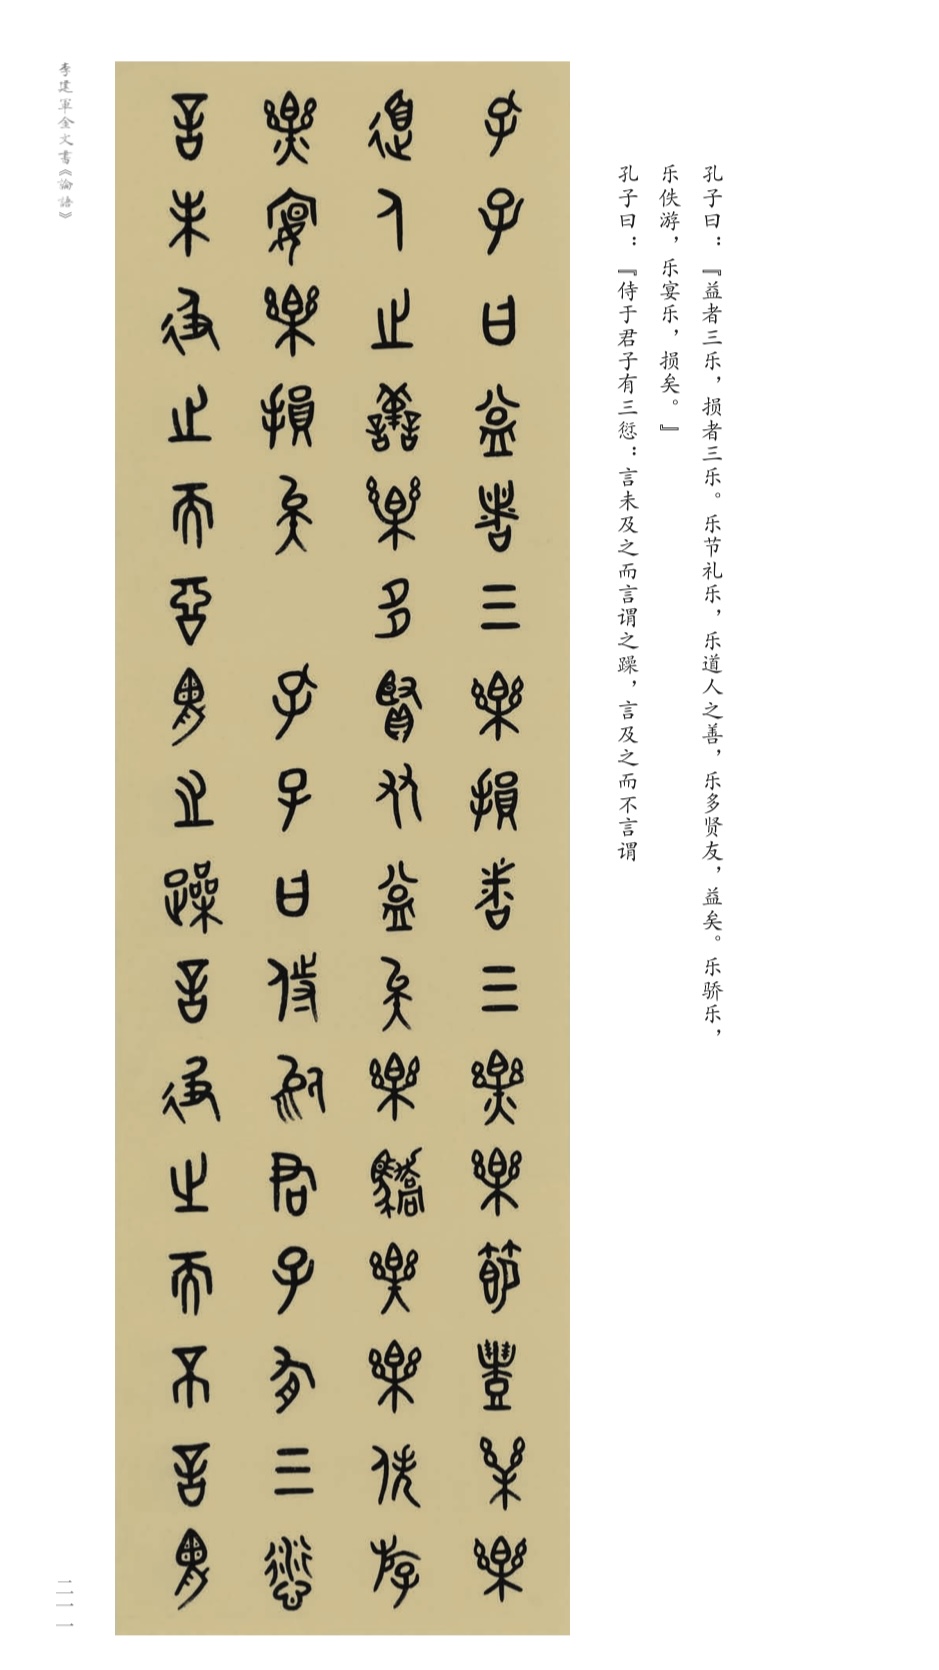 孔子曰：『益者三乐，损者三乐。乐节礼乐，乐道人之善，乐多贤友，益矣。乐骄乐，
乐佚游，乐宴乐，损矣。』
孔子曰：『侍于君子有三愆：言未及之而言谓之躁，言及之而不言谓
孔子曰益者三樂損者三樂樂節豊樂樂
道人之善樂多賢友益矣樂驕樂樂佚游
樂宴樂損矣 孔子曰侍于君子有三愆
言未及之而言謂之躁言及之而不言謂
李建軍金文書《論語》
二一一